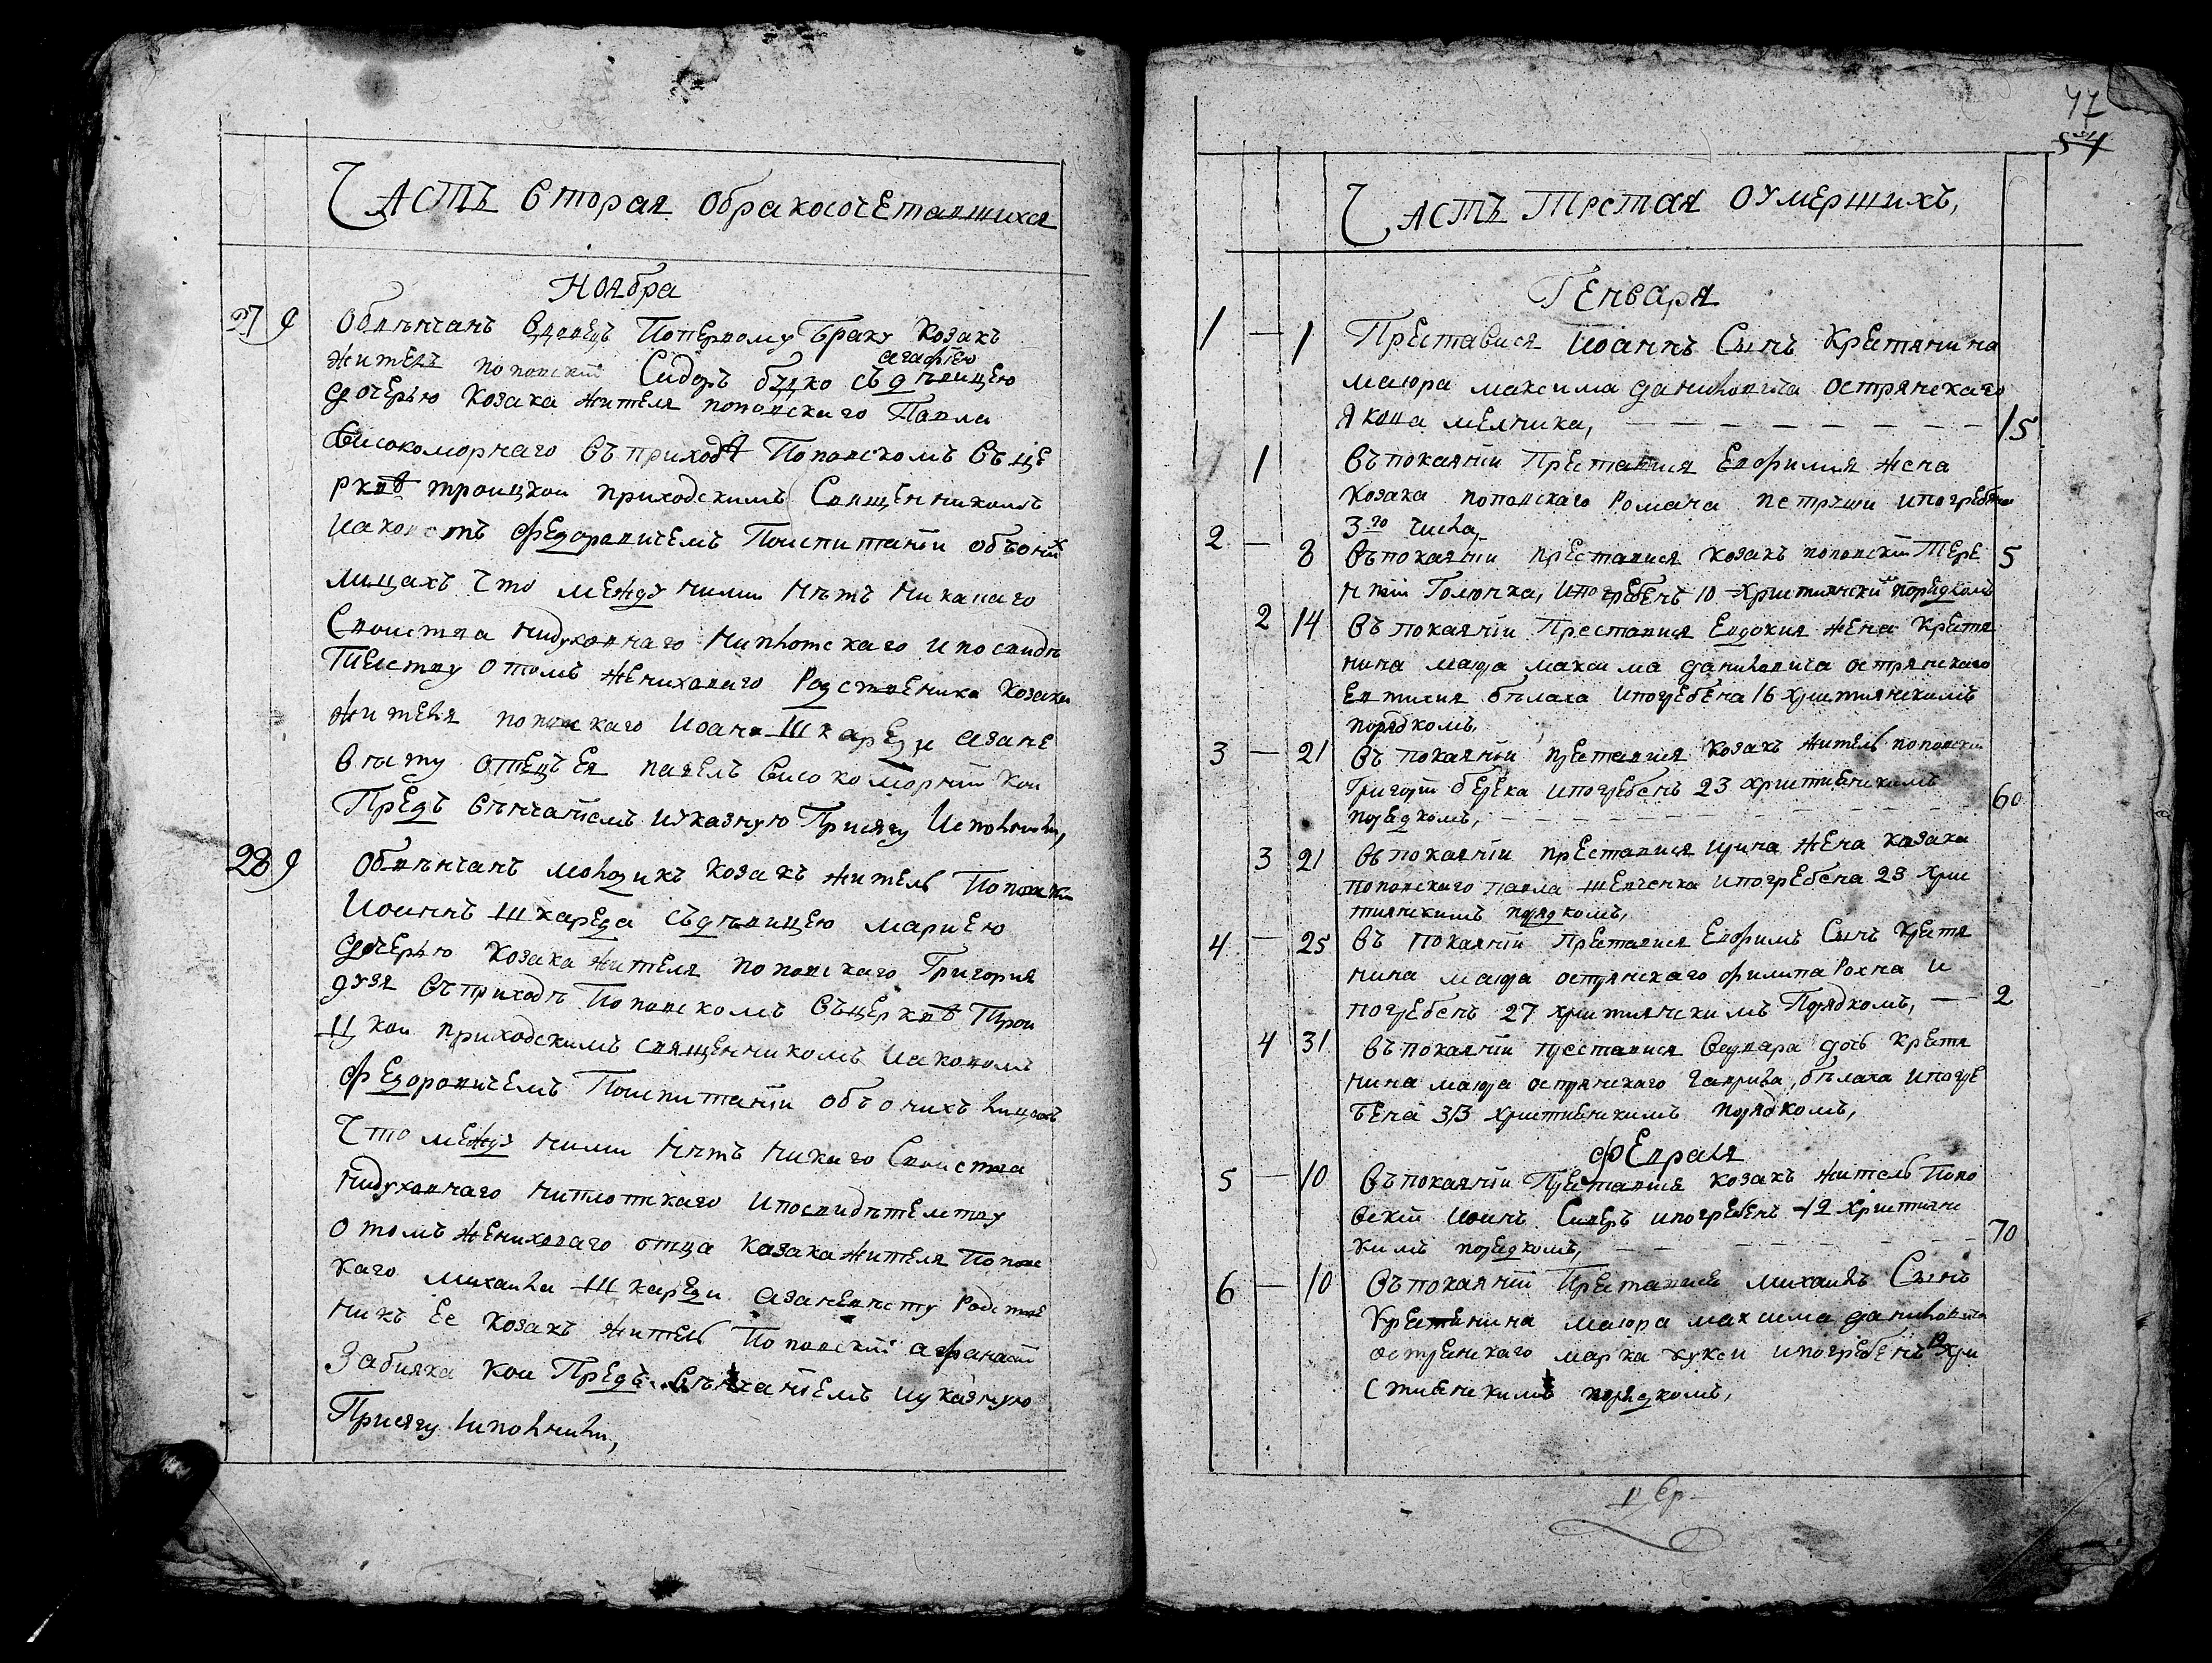 Часть вторая обракосочетавшихся
Ноября
27 9 Обвѣнчанъ вдовецъ По первому браку козакъ
житель поповскій Сидоръ буцко съ дѣвицею агафіею
дочерью козака жителя поповскаго Павла
високоморнаго въ приходѣ Поповскомъ въ це
рквѣ троицкои приходскимъ Священникомъ
Иаковомъ федоровичемъ По испитаніи объ оних
лицахъ что между ними нѣтъ никакаго
Своиства ни духовнаго ни плотскаго и по свидѣ
телству о томъ женихового Родственика козака
жителя поповскаго Иоана Шкареди а за не
вѣсту отецъ ея павелъ високоморній кои
Предъ вѣнчаніемъ и указную Присягу Исполнили,
28 9 Обвѣнчанъ молодикъ козакъ житель Поповскій
Иоаннъ шкареда съ дѣвицею мариею
дочерью козака жителя поповскаго Григория
дузя въ приходѣ Поповскомъ въ церквѣ Трои
цкои приходскимъ священникомъ Иаковомъ
федоровичемъ По испитаніи объ онихъ лицахъ
Что между ними нѣтъ никаго Своиства
ни духовнаго ни плотскаго и по свидѣтелству
о томъ жениховаго отца козака жителя Поповс
каго михаила шкареди а за невѣсту родстве
никъ ее козакъ житель Поповскій афанасій
Забияка кои Предъ вѣнчаніемъ и указную
Присягу исполнили,
47
54
Часть Третая оумершихъ,
Генваря
1 — 1 Преставися Иоаннъ Сынъ Крестянина
маюра максима даниловича острянскаго
Якова мелника, 15
1 въ покаяніи Преставися Евфимия жена
козака поповскаго Романа петрѣши и погребена
3го числа,
2 — 8 въ покаяніи преставися козакъ поповскій Тере
нтій Голючка, и погребенъ 10 християнскимъ порядкомъ 5
2 14 въ покаяніи Преставися Евдокия жена Крестя
нина маюра максима даниловича острянскаго
Евтихия бѣлаха и погребена 16 християнскимъ
порядкомъ,
3 — 21 въ покаяніи преставися козакъ житель поповски
Григорій берека и погребенъ 23 християнскимъ
порядкомъ, 60
3 21 въ покаяніи преставися ирина жена козака
поповскаго павла шевченка и погребена 23 хрис
тиянскимъ порядкомъ,
4 — 25 въ покаяніи Преставися Евфимъ Сынъ Крестя
нина маюра острянскаго филипа Рохна и
погребенъ 27 християнскимъ Порядкомъ, — 2
4 31 въ покаяніи преставися варвара дочь крестя
нина маюра острянскаго Гаврила, бѣлаха и погре
бена 33 християнскимъ порядкомъ,
февраля
5 — 10 въ покаяніи Преставися козакъ житель Попо
вскій Иоанъ и погребенъ 12 християнс
кимъ порядкомъ, 70
6 — 10 въ покаяніи Преставися михаилъ Сынъ
Крестянина маюра максима даниловича
острянскаго марка кукси и погребенъ 12 хри
стиянскимъ порядкомъ,